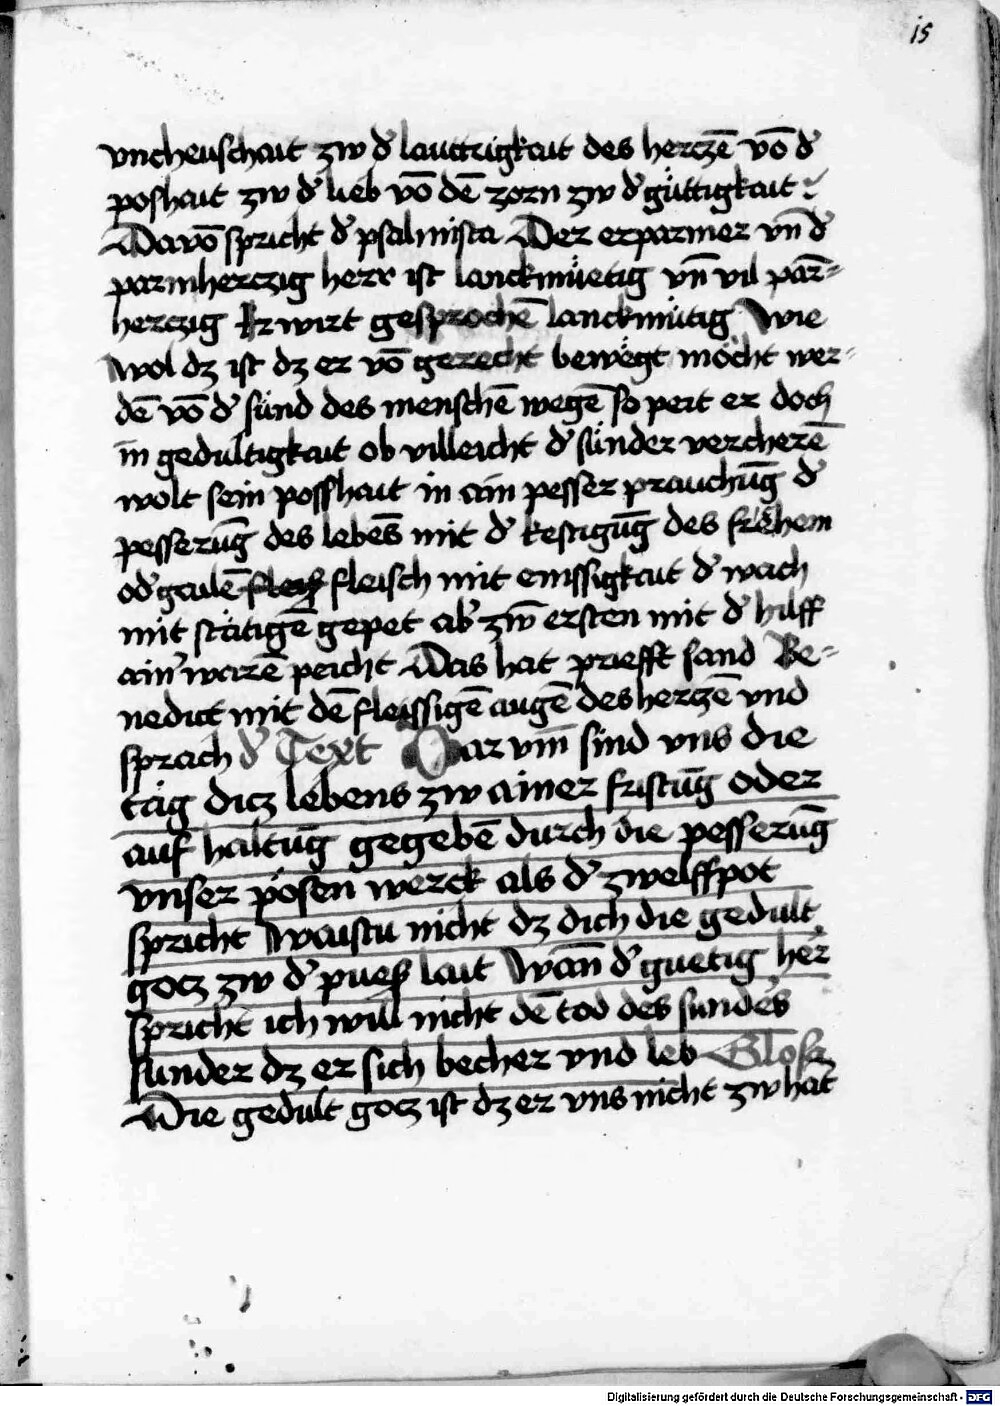 15
vncheuschait zw d' lauttrigkait des herczē vō d'
poshait zw d' lieb vō dē zorn zw d' güttigkait
Davō spricht d' psalmista Der erparmer vn̄ d'
parmherczig herr ist lanckmüetig vn̄ vil par̄=
herczig Er wirt gesprochē lanckmütig Wie
wol dz ist dz er vō gerecht bewegt möcht wer=
dē vō d' sünd des menschē wegē so peit er doch
in gedultigkait ob villeicht d' sünder vercherē
wolt sein posshait in ain pesser prauchūg d'
pesserūg des lebēs mit d' kestigūg des frechem
od' geulē fleisch mit emssigkait d' wach
mit stätigē gepet ab' zw̄ ersten mit d' hilff
ain' warē peicht Das hat priefft sand Be=
nedict mit dē fleissigē augē des herczē vnd
sprach d' Text Dar vm̄ sind vns die
täg dicz lebens zw ainer fristūg oder
auf haltūg gegebē durch die pesserūg
vnser pösen werck als d' zwelffpot
spricht Waistu nicht dz dich die gedult
gocz zw d' pueß lait Wan̄ d' guetig her'
spricht ich will nicht dē tod des sundes
sunder dz er sich becher vnd leb Glosz
Die gedult gocz ist dz er vns nicht zw hāt
Digitalisierung gefördert durch die Deutsche Forschungsgemeinschaft - DFG